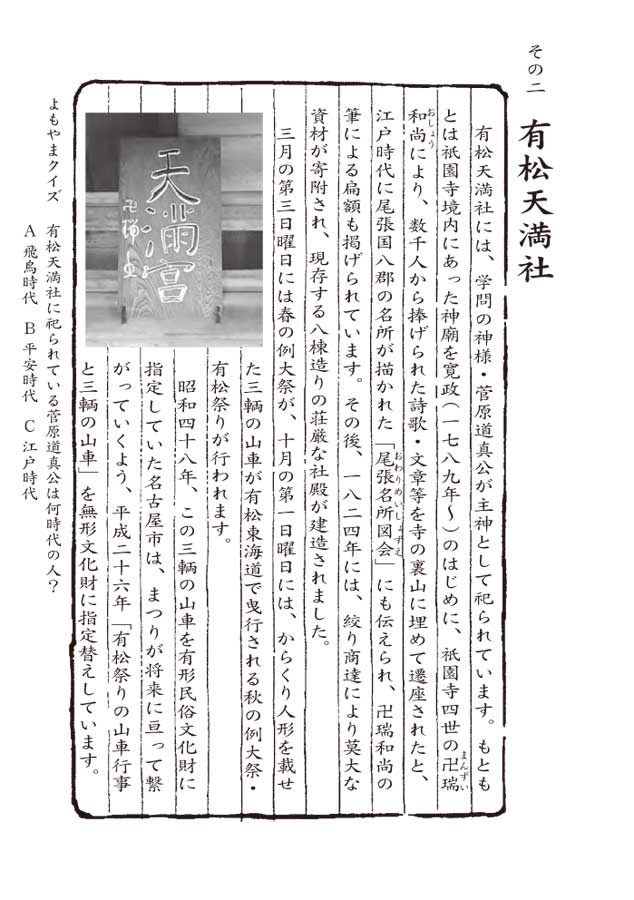 その二 有松天満社
有松天満社には、学問の神様・菅原道真公が主神として祀られています。もとも
とは祇園寺境内にあった神廟を寛政(一七八九年〜)のはじめに、祇園寺四世の卍瑞
和尚により、数千人から捧げられた詩歌・文章等を寺の裏山に埋めて遷座されたと、
江戸時代に尾張国八郡の名所が描かれた「尾張名所図会」にも伝えられ、卍瑞和尚の
筆による扁額も掲げられています。その後、一八二四年には、絞り商達により莫大な
資材が寄附され、現存する八棟造りの荘厳な社殿が建造されました。
三月の第三日曜日には春の例大祭が、十月の第一日曜日には、からくり人形を載せ
た三輌の山車が有松東海道で曳行される秋の例大祭・
有松祭りが行われます。
昭和四十八年、この三輌の山車を有形民俗文化財に
指定していた名古屋市は、まつりが将来に亘って繋
がっていくよう、平成二十六年「有松祭りの山車行事
と三輌の山車」を無形文化財に指定替えしています。
まんずい
おしょう
おわりめいしょずえ
天満宮
卍瑞書
よもやまクイズ 有松天満社に祀られている菅原道真公は何時代の人?
A 飛鳥時代 B 平安時代 C 江戸時代